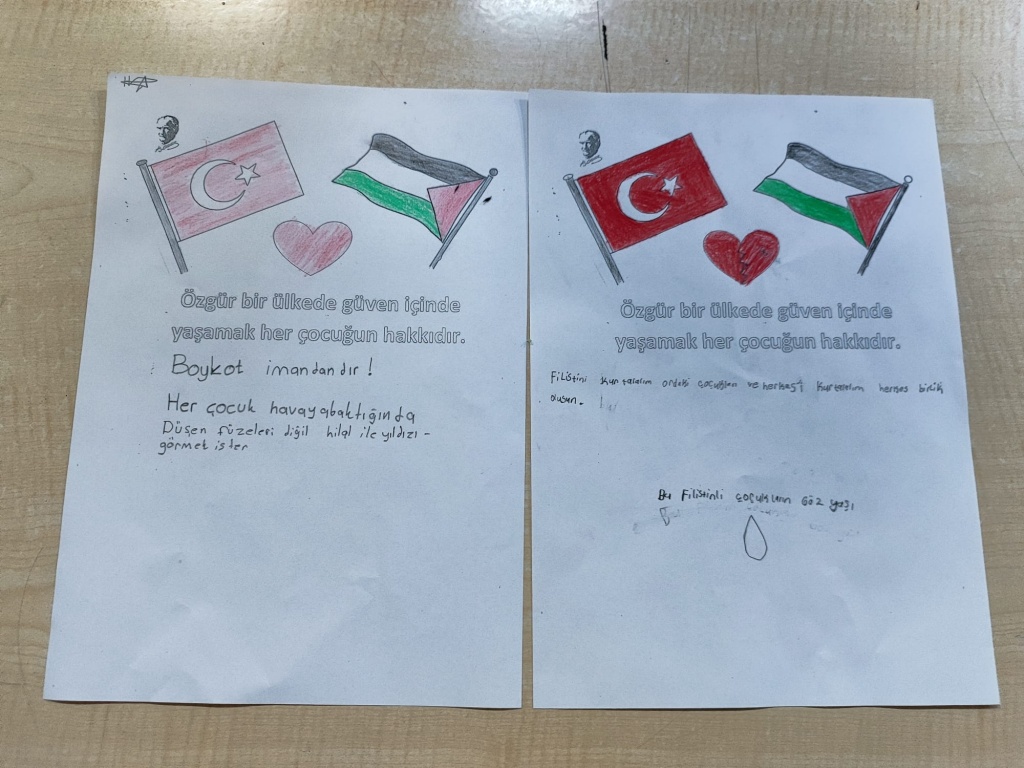 Özgür bir ülkede güven içinde
yaşamak her çocuğun hakkıdır.
Boykot imandandır !
Her çocuk havayabaktığında
Düşen füzeleri diğil hilal ile yıldızı -
görmet ister
Özgür bir ülkede güven içinde
yaşamak her çocuğun hakkıdır.
Filistini kurtaralım ordaki çocukları ve herkesi kurtaralım herkes birlik
olusun.
Bu Filistinli çocukların Göz yaşı